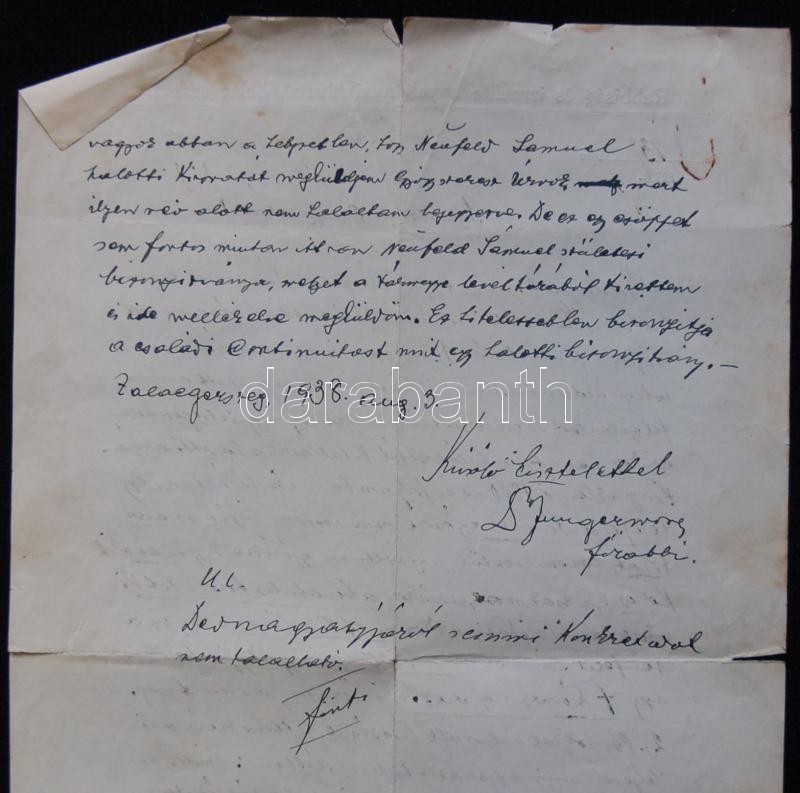 vagyok abban a helyzetben, hogy Neufeld Samuel
halotti kivonatát megküldjem mert
ilyen név alatt nem találtam bejegyezve. De ez egy csöppet
sem fontos miután itt van Neufeld Sámuel születési
bizonyítványa, melyet a Vármegye levéltárából kivettem
és ide mellékelve megküldöm. Ez hitelesebben bizonyítja
a családi Continuitást mint egy halotti bizonyítvány. —
Zalaegerszeg, 1938. aug. 3.
darabanth
Kiváló tisztelettel
Dr Junger Mózes
főrabbi.
U. i.
Dédnagyatyjáról semmi Konkret adat
nem található.
fenti